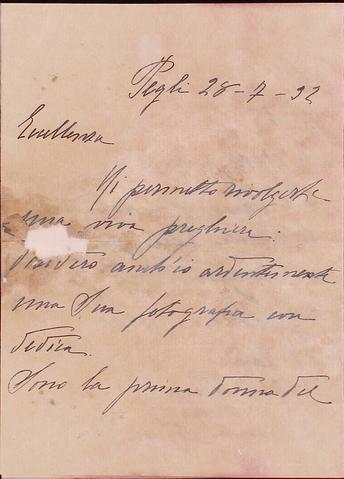 Pegli 28-7-32
Eccellenza
Mi permetto rivolgerle
una viva preghiera:
desidero anch'io ardentemente
una Sua fotografia con
dedica.
Sono la prima donna del